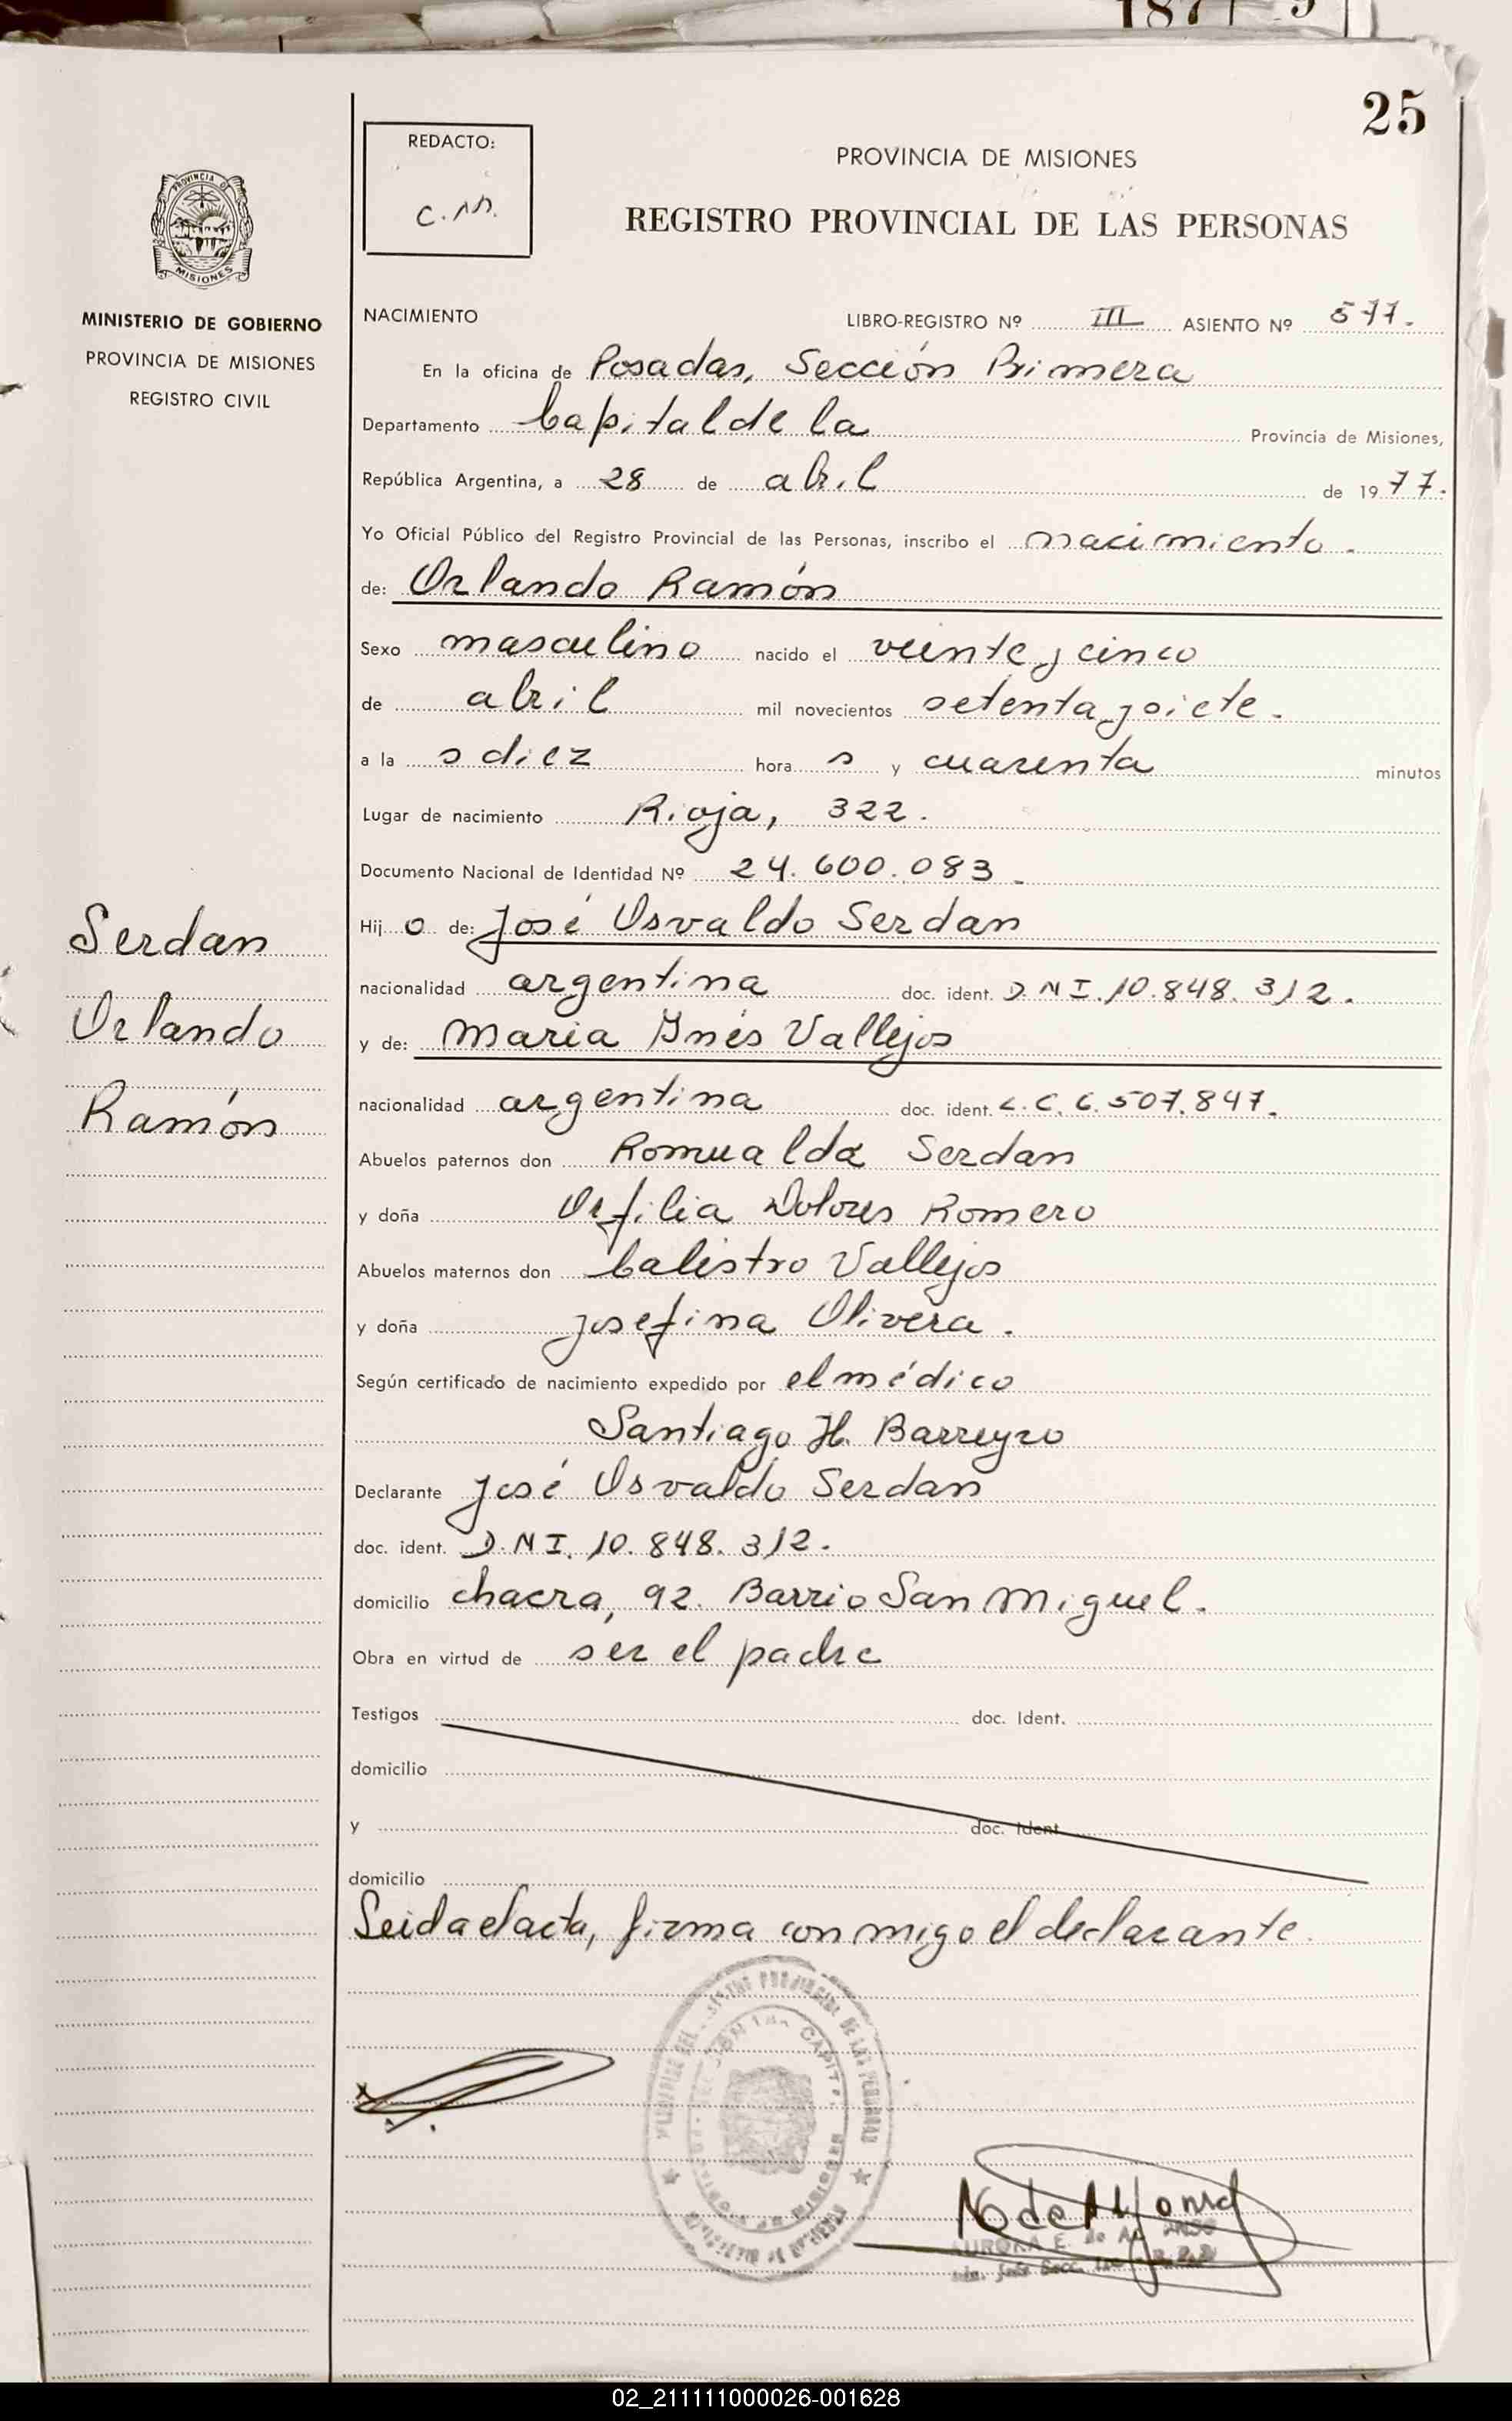 25
REDACTO:
C.M.
PROVINCIA DE MISIONES
REGISTRO PROVINCIAL DE LAS PERSONAS
PROVINCIA DE
MISIONES
MINISTERIO DE GOBIERNO
PROVINCIA DE MISIONES
REGISTRO CIVIL
NACIMIENTO LIBRO-REGISTRO Nº III ASIENTO Nº 577.
En la oficina de Posadas, Sección Primera
Departamento Capital de la Provincia de Misiones,
República Argentina, a 28 de abril de 1977.
Yo Oficial Público del Registro Provincial de las Personas, inscribo el nacimiento.
de: Orlando Ramón
Sexo masculino nacido el veinte y cinco
de abril mil novecientos setenta y siete.
a la s diez hora s y cuarenta minutos
Lugar de nacimiento Rioja, 322.
Documento Nacional de Identidad Nº 24.600.083.
Hij o de: José Osvaldo Serdan
nacionalidad argentina doc. ident. D.N.I. 10.848.312.
y de: Maria Ynés Vallejos
nacionalidad argentina doc. ident. L.C. 6.507.847.
Abuelos paternos don Romualda Serdan
y doña Orfilia Dolores Romero
Abuelos maternos don Calistro Vallejos
y doña Josefina Olivera.
Según certificado de nacimiento expedido por el médico
Santiago H. Barreyro
Declarante José Osvaldo Serdan
doc. ident. D.N.I. 10.848.312.
domicilio chacra, 92. Barrio San Miguel.
Obra en virtud de ser el padre
Testigos doc. Ident.
domicilio
y doc. Ident.
domicilio
Leida el acta, firma conmigo el declarante.
Serdan
Orlando
Ramón
PROVINCIAL DE LAS PERSONAS
AURORA E. de
02_211111000026-001628